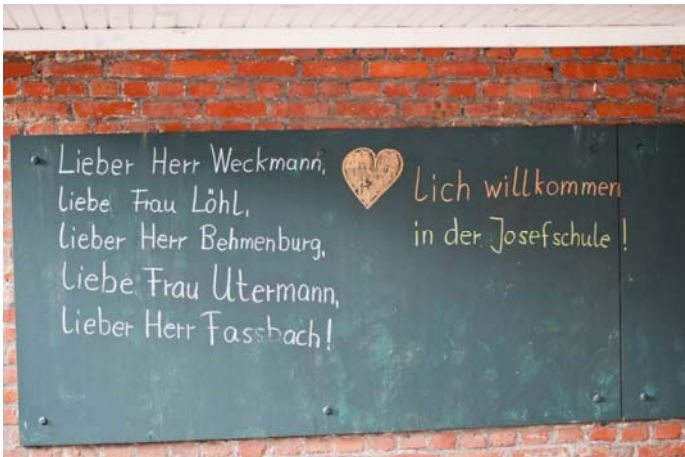 Lieber Herr Weckmann,
liebe Frau Löhl,
lieber Herr Behmenburg,
Liebe Frau Utermann,
Lieber Herr Fassbach!
lich willkommen
in der Josefschule!